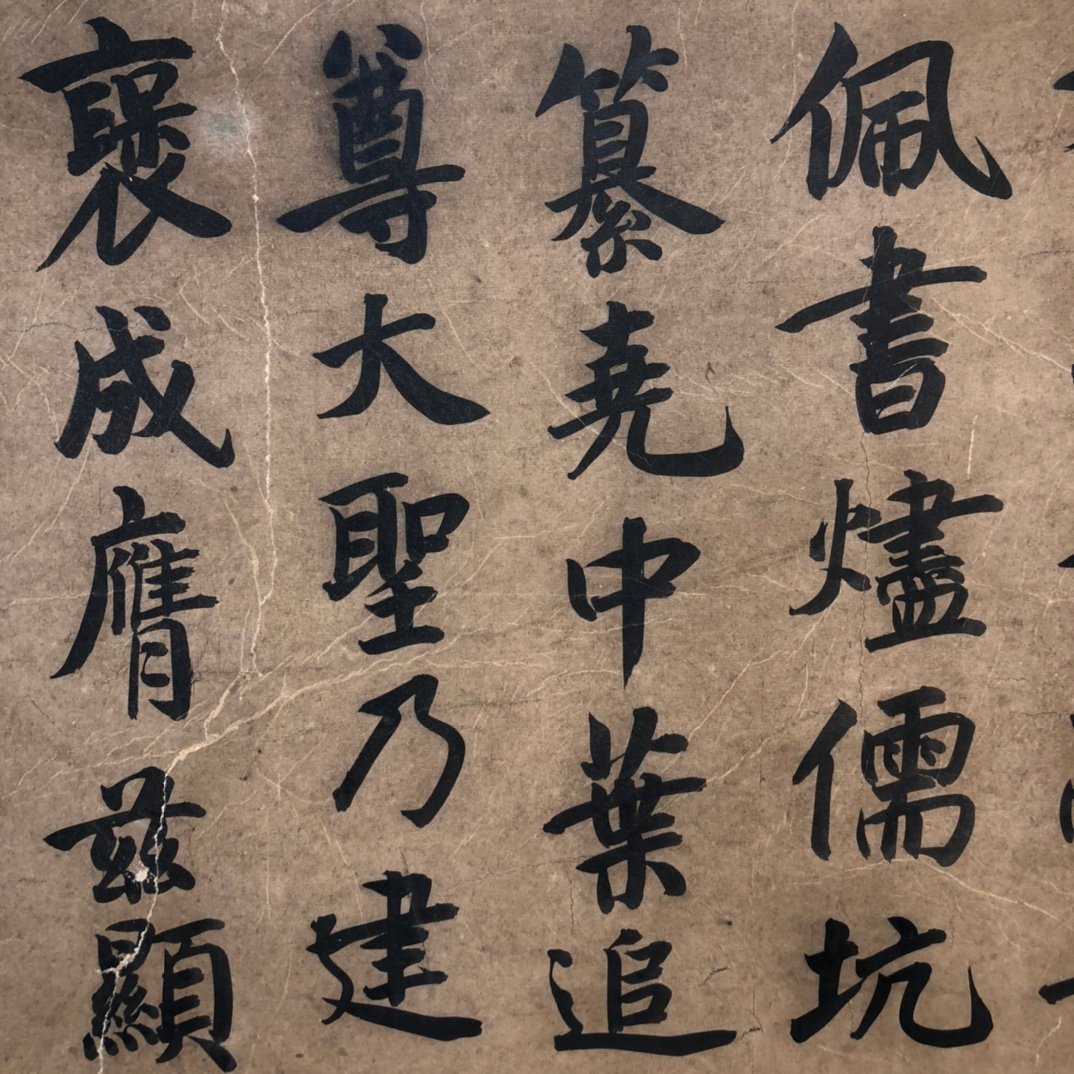 佩書燼儒坑
纂堯中葉追
尊大聖乃建
褒成膺茲顯